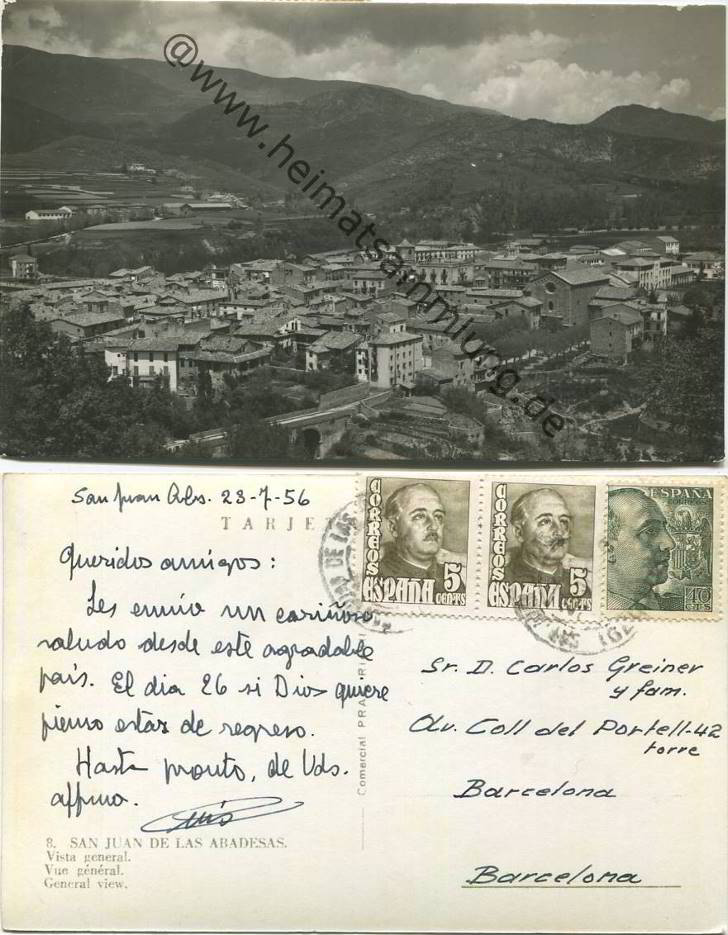 @www.heimatsammlung.de
San Juan Abs. 23-7-56
TARJE
Queridos amigos:
Les envío un cariñoso
saludo desde este agradable
país. El dia 26 si Dios quiere
pienso estar de regreso.
Hasta pronto, de Vds.
affmo.
Luis
8. SAN JUAN DE LAS ABADESAS.
Vista general.
Vue général.
General view.
Comercial PRAT
CORREOS
ESPAÑA 5
CENTS
CORREOS
ESPAÑA 5
CENTS
ESPAÑA
CORREOS
40
CTS
Sr. D. Carlos Greiner
y fam.
Av. Coll del Portell-42
torre
Barcelona
Barcelona